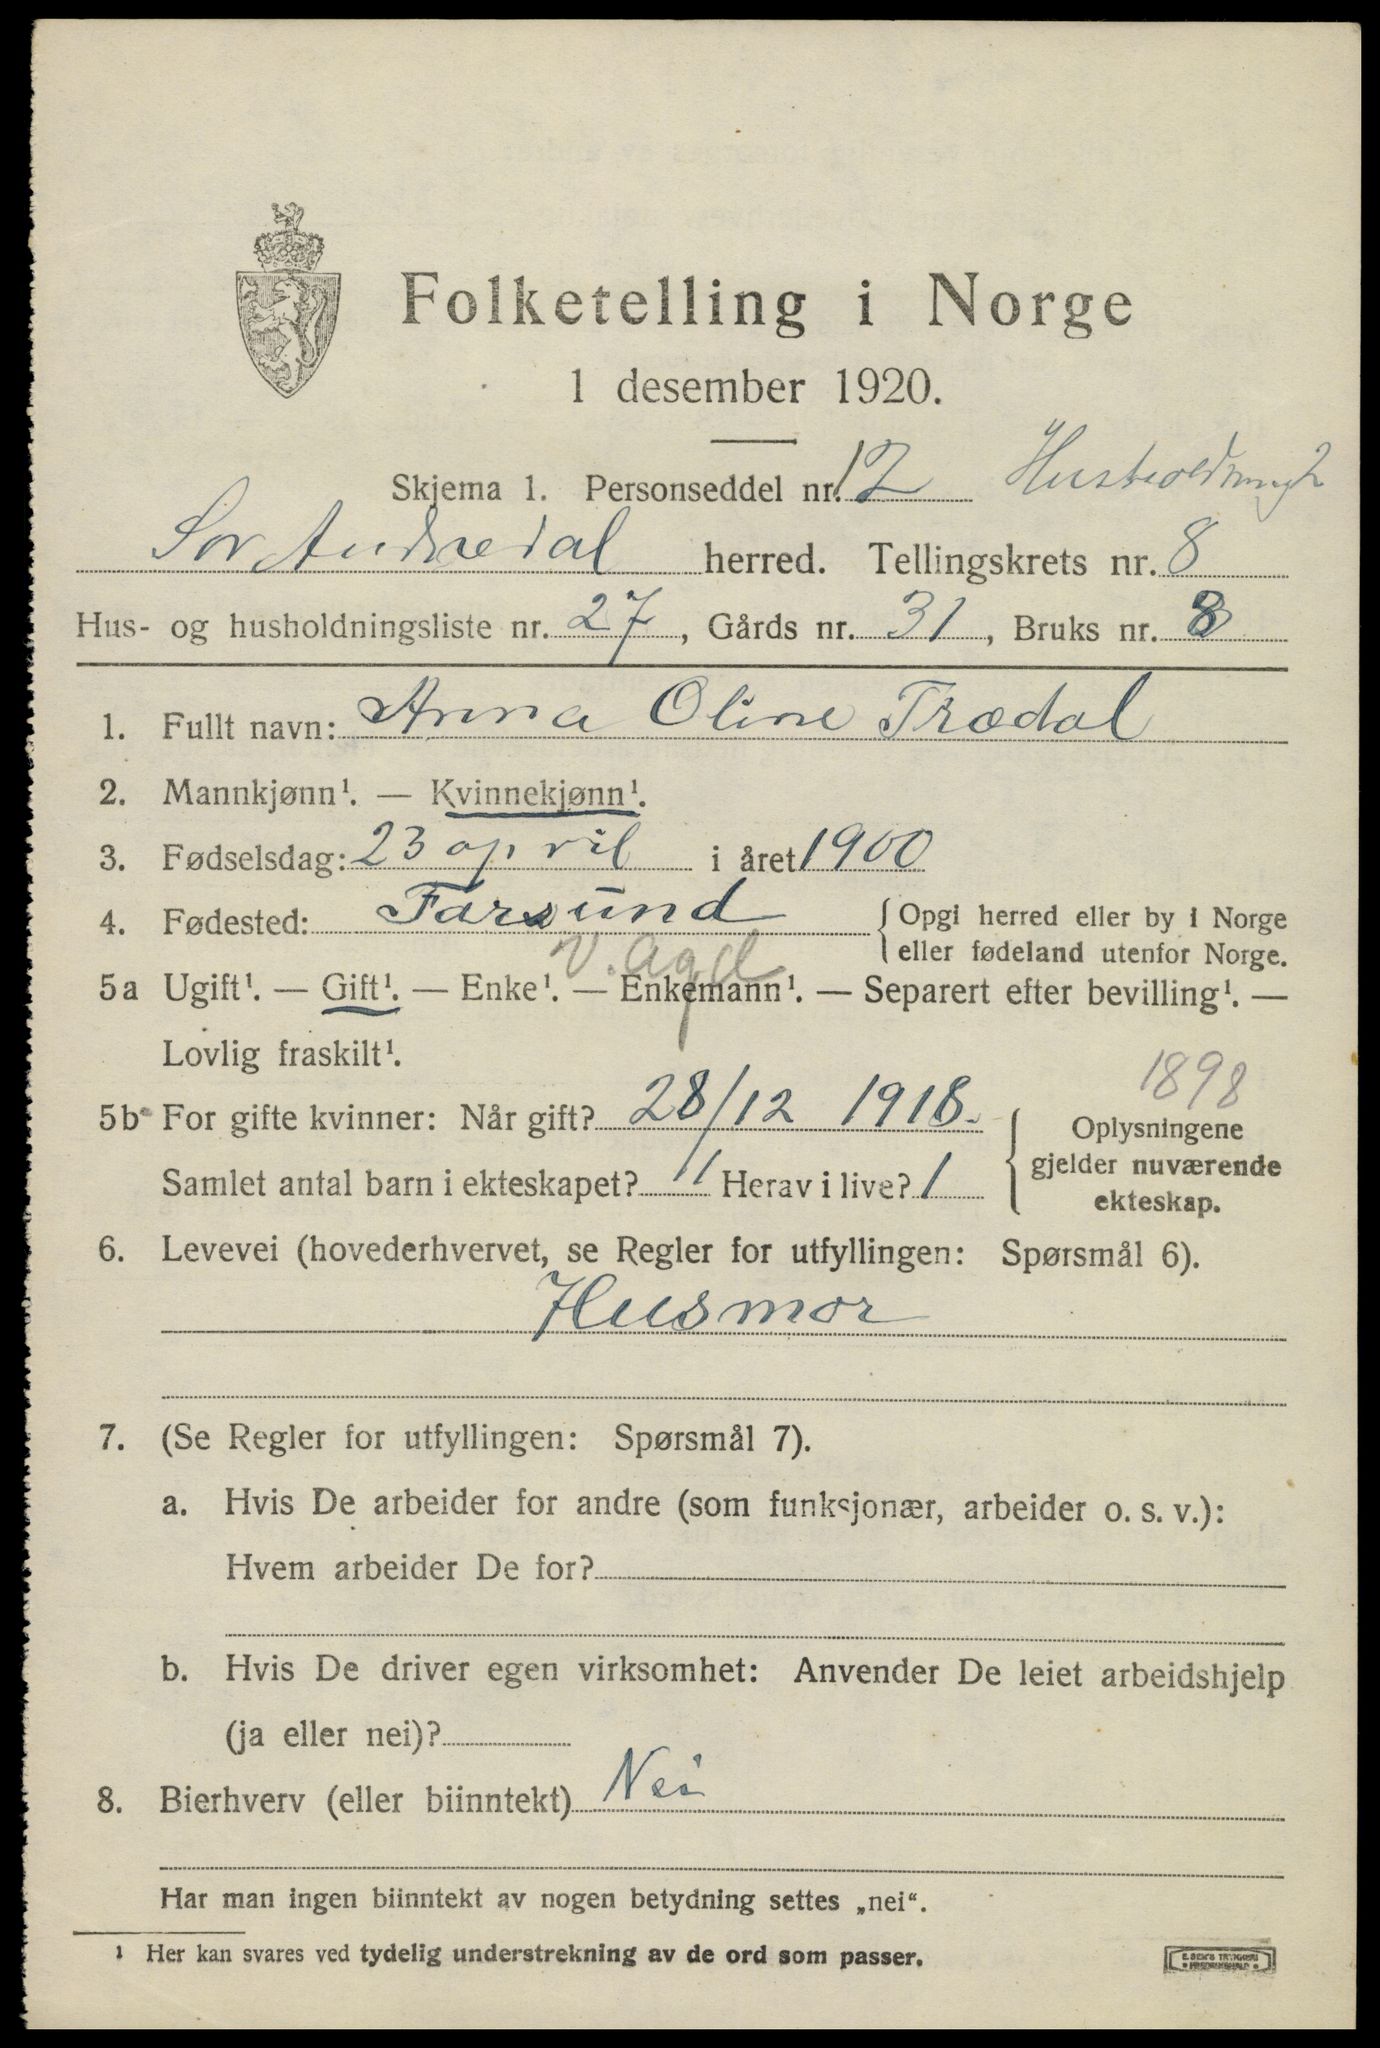 Folketelling i Norge
1 desember 1920.
Skjema 1. Personseddel nr. 12 Husholdning 2
Sør Audnedal herred. Tellingskrets nr. 8
Hus- og husholdningsliste nr. 27, Gårds nr. 31, Bruks nr. 8
1. Fullt navn: Anna Oline Trædal
2. Mannkjønn¹. — Kvinnekjønn¹.
3. Fødselsdag: 23 april i året 1900
4. Fødested: Farsund { Opgi herred eller by i Norge
eller fødeland utenfor Norge.
V. Agd
5a Ugift¹. — Gift¹. — Enke¹. — Enkemann¹. — Separert efter bevilling¹. —
Lovlig fraskilt¹.
1898
5b For gifte kvinner: Når gift? 28/12 1918. { Oplysningene
gjelder nuværende
ekteskap.
Samlet antal barn i ekteskapet? 1 Herav i live? 1
6. Levevei (hovederhvervet, se Regler for utfyllingen: Spørsmål 6).
Husmor
7. (Se Regler for utfyllingen: Spørsmål 7).
a. Hvis De arbeider for andre (som funksjonær, arbeider o. s. v.):
Hvem arbeider De for?
b. Hvis De driver egen virksomhet: Anvender De leiet arbeidshjelp
(ja eller nei)?
8. Bierhverv (eller biinntekt) Nei
Har man ingen biinntekt av nogen betydning settes „nei“.
¹ Her kan svares ved tydelig understrekning av de ord som passer.